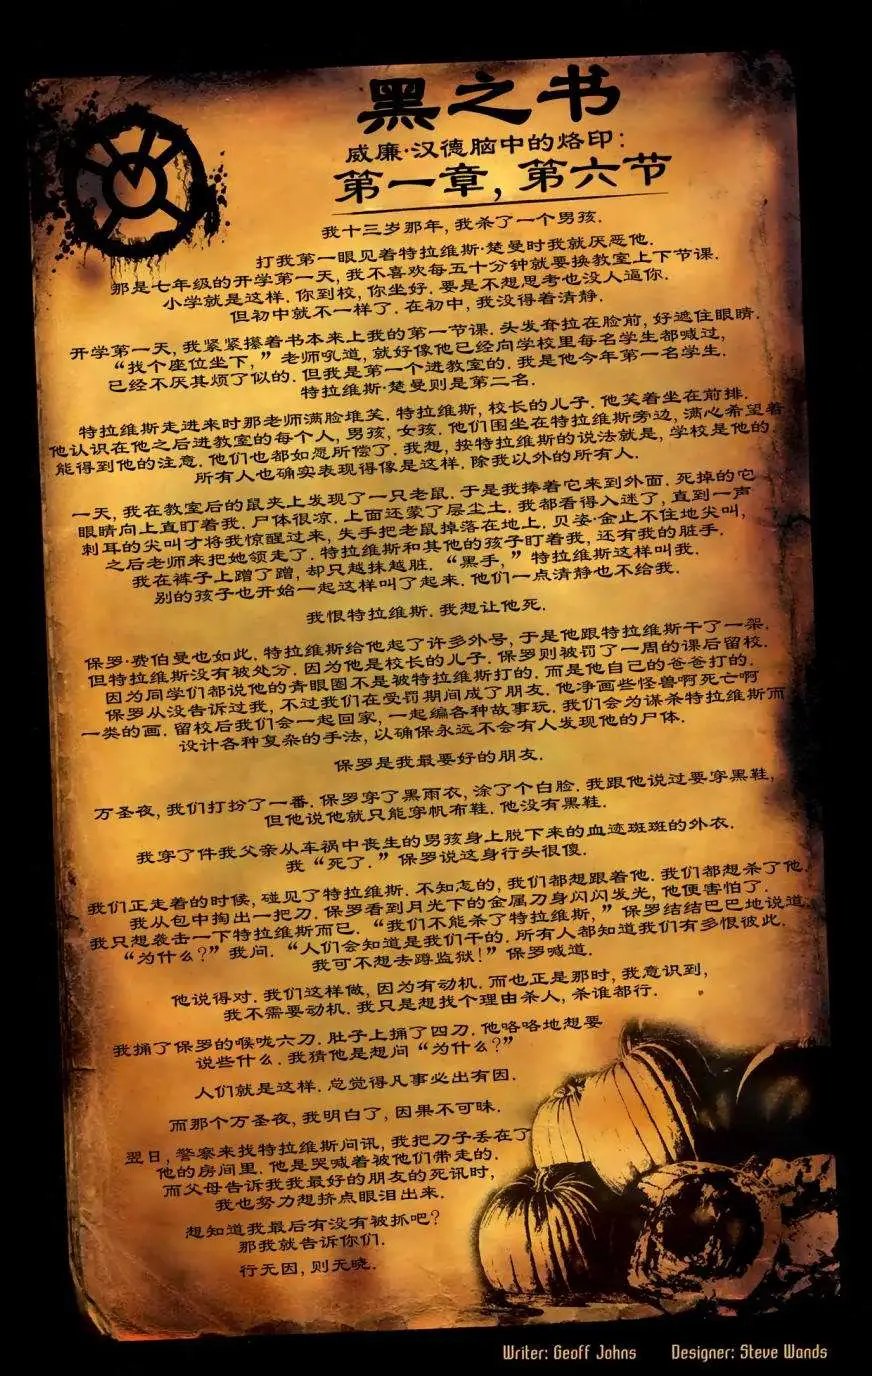 黑之书
威廉·汉德脑中的烙印：
第一章，第六节
我十三岁那年，我杀了一个男孩．
打我第一眼见着特拉维斯·楚曼时我就厌恶他．
那是七年级的开学第一天，我不喜欢每五十分钟就要换教室上下节课．
小学就是这样．你到校，你坐好．要是不想思考也没人逼你．
但初中就不一样了．在初中，我没得着清静．
开学第一天，我紧紧攥着书本来上我的第一节课．头发耷拉在脸前，好遮住眼睛．
“找个座位坐下，”老师吼道，就好像他已经向学校里每名学生都喊过，
已经不厌其烦了似的．但我是第一个进教室的．我是他今年第一名学生．
特拉维斯·楚曼则是第二名．
特拉维斯走进来时那老师满脸堆笑．特拉维斯，校长的儿子．他笑着坐在前排．
他认识在他之后进教室的每个人，男孩，女孩．他们围坐在特拉维斯旁边，满心希望着
能得到他的注意．他们也都如愿所偿了．我想，按特拉维斯的说法就是，学校是他的．
所有人也确实表现得像是这样．除我以外的所有人．
一天，我在教室后的鼠夹上发现了一只老鼠．于是我捧着它来到外面．死掉的它
眼睛向上直盯着我．尸体很凉．上面还蒙了层尘土．我都看得入迷了，直到一声
刺耳的尖叫才将我惊醒过来，失手把老鼠掉落在地上．贝姿·金止不住地尖叫，
之后老师来把她领走了．特拉维斯和其他的孩子盯着我，还有我的脏手．
我在裤子上蹭了蹭，却只越抹越脏．“黑手，”特拉维斯这样叫我．
别的孩子也开始一起这样叫了起来．他们一点清静也不给我．
我恨特拉维斯．我想让他死．
保罗·费伯曼也如此．特拉维斯给他起了许多外号，于是他跟特拉维斯干了一架．
但特拉维斯没有被处分．因为他是校长的儿子．保罗则被罚了一周的课后留校．
因为同学们都说他的青眼圈不是被特拉维斯打的．而是他自己的爸爸打的．
保罗从没告诉过我，不过我们在受罚期间成了朋友．他净画些怪兽啊死亡啊
一类的画．留校后我们会一起回家，一起编各种故事玩．我们会为谋杀特拉维斯而
设计各种复杂的手法，以确保永远不会有人发现他的尸体．
保罗是我最要好的朋友．
万圣夜，我们打扮了一番．保罗穿了黑雨衣，涂了个白脸．我跟他说过要穿黑鞋，
但他说他就只能穿帆布鞋．他没有黑鞋．
我穿了件我父亲从车祸中丧生的男孩身上脱下来的血迹斑斑的外衣．
我“死了．”保罗说这身行头很傻．
我们正走着的时候，碰见了特拉维斯．不知怎的，我们都想跟着他．我们都想杀了他．
我从包中掏出一把刀．保罗看到月光下的金属刀身闪闪发光，他便害怕了．
我只想袭击一下特拉维斯而已．“我们不能杀了特拉维斯，”保罗结结巴巴地说道．
“为什么？”我问．“人们会知道是我们干的．所有人都知道我们有多恨彼此．
我可不想去蹲监狱！”保罗喊道．
他说得对．我们这样做，因为有动机．而也正是那时，我意识到，
我不需要动机．我只是想找个理由杀人，杀谁都行．
我捅了保罗的喉咙六刀．肚子上捅了四刀．他咯咯地想要
说些什么．我猜他是想问“为什么？”
人们就是这样．总觉得凡事必出有因．
而那个万圣夜，我明白了，因果不可昧．
翌日，警察来找特拉维斯问讯，我把刀子丢在了
他的房间里．他是哭喊着被他们带走的．
而父母告诉我我最好的朋友的死讯时，
我也努力想挤点眼泪出来．
想知道我最后有没有被抓吧？
那我就告诉你们．
行无因，则无晓．
Writer: Geoff Johns Designer: Steve Wands